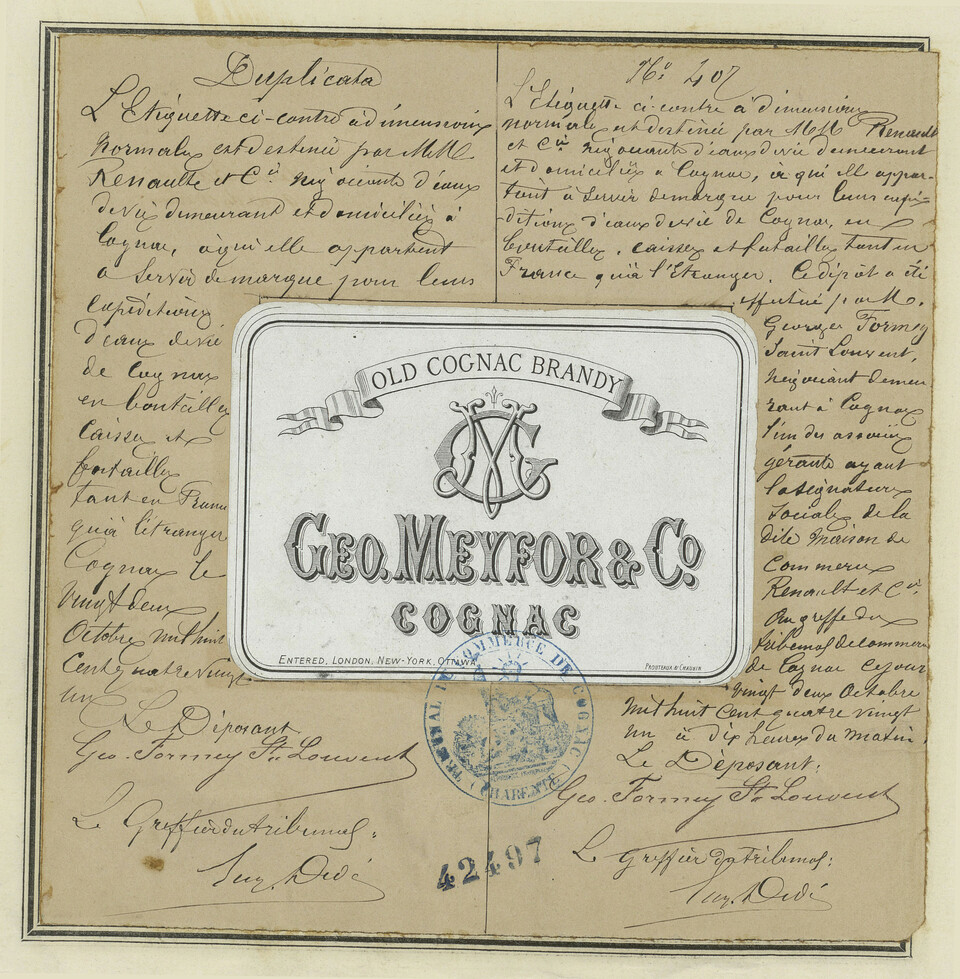 Duplicata
L'Etiquette ci-contre à dimensions
normales est destinée par M.M.
Renault et Cie négociants d'eaux
de vie demeurant et domiciliés à
Cognac, à qui elle appartient
à servir de marque pour leurs
expéditions
d'eaux de vie
de Cognac
en bouteilles
caisses et
futailles
tant en France
qu'à l'étranger
Cognac le
vingt deux
Octobre mil huit
cent quatre vingt
un
Le Déposant
Geo. Formey St. Louvent
Le Greffier du tribunal:
No. 407
L'Etiquette ci-contre à dimensions
normales est destinée par M.M. Renault
et Cie négociants d'eaux de vie demeurant
et domiciliés à Cognac, à qui elle appar-
tient à servir de marque pour leurs expé-
ditions d'eaux de vie de Cognac, en
bouteilles, caisses et futailles tant en
France qu'à l'Etranger. Ce dépôt a été
effectué par M.
Georges Formey
Saint Louvent,
négociant demeu
rant à Cognac,
l'un des associés
gérants ayant
la signature
sociale de la
dite maison de
commerce
Renault et Cie.
au greffe du
tribunal de commerce
de Cognac ce jour
vingt deux Octobre
mil huit cent quatre vingt
un à dix heures du matin.
Le Déposant:
Geo. Formey St. Louvent
Le Greffier du tribunal:
OLD COGNAC BRANDY
GEO. MEYFOR & Co
COGNAC
ENTERED, LONDON, NEW-YORK, OTTAWA
TRIBUNAL DE COMMERCE DE COGNAC
(CHARENTE)
42497